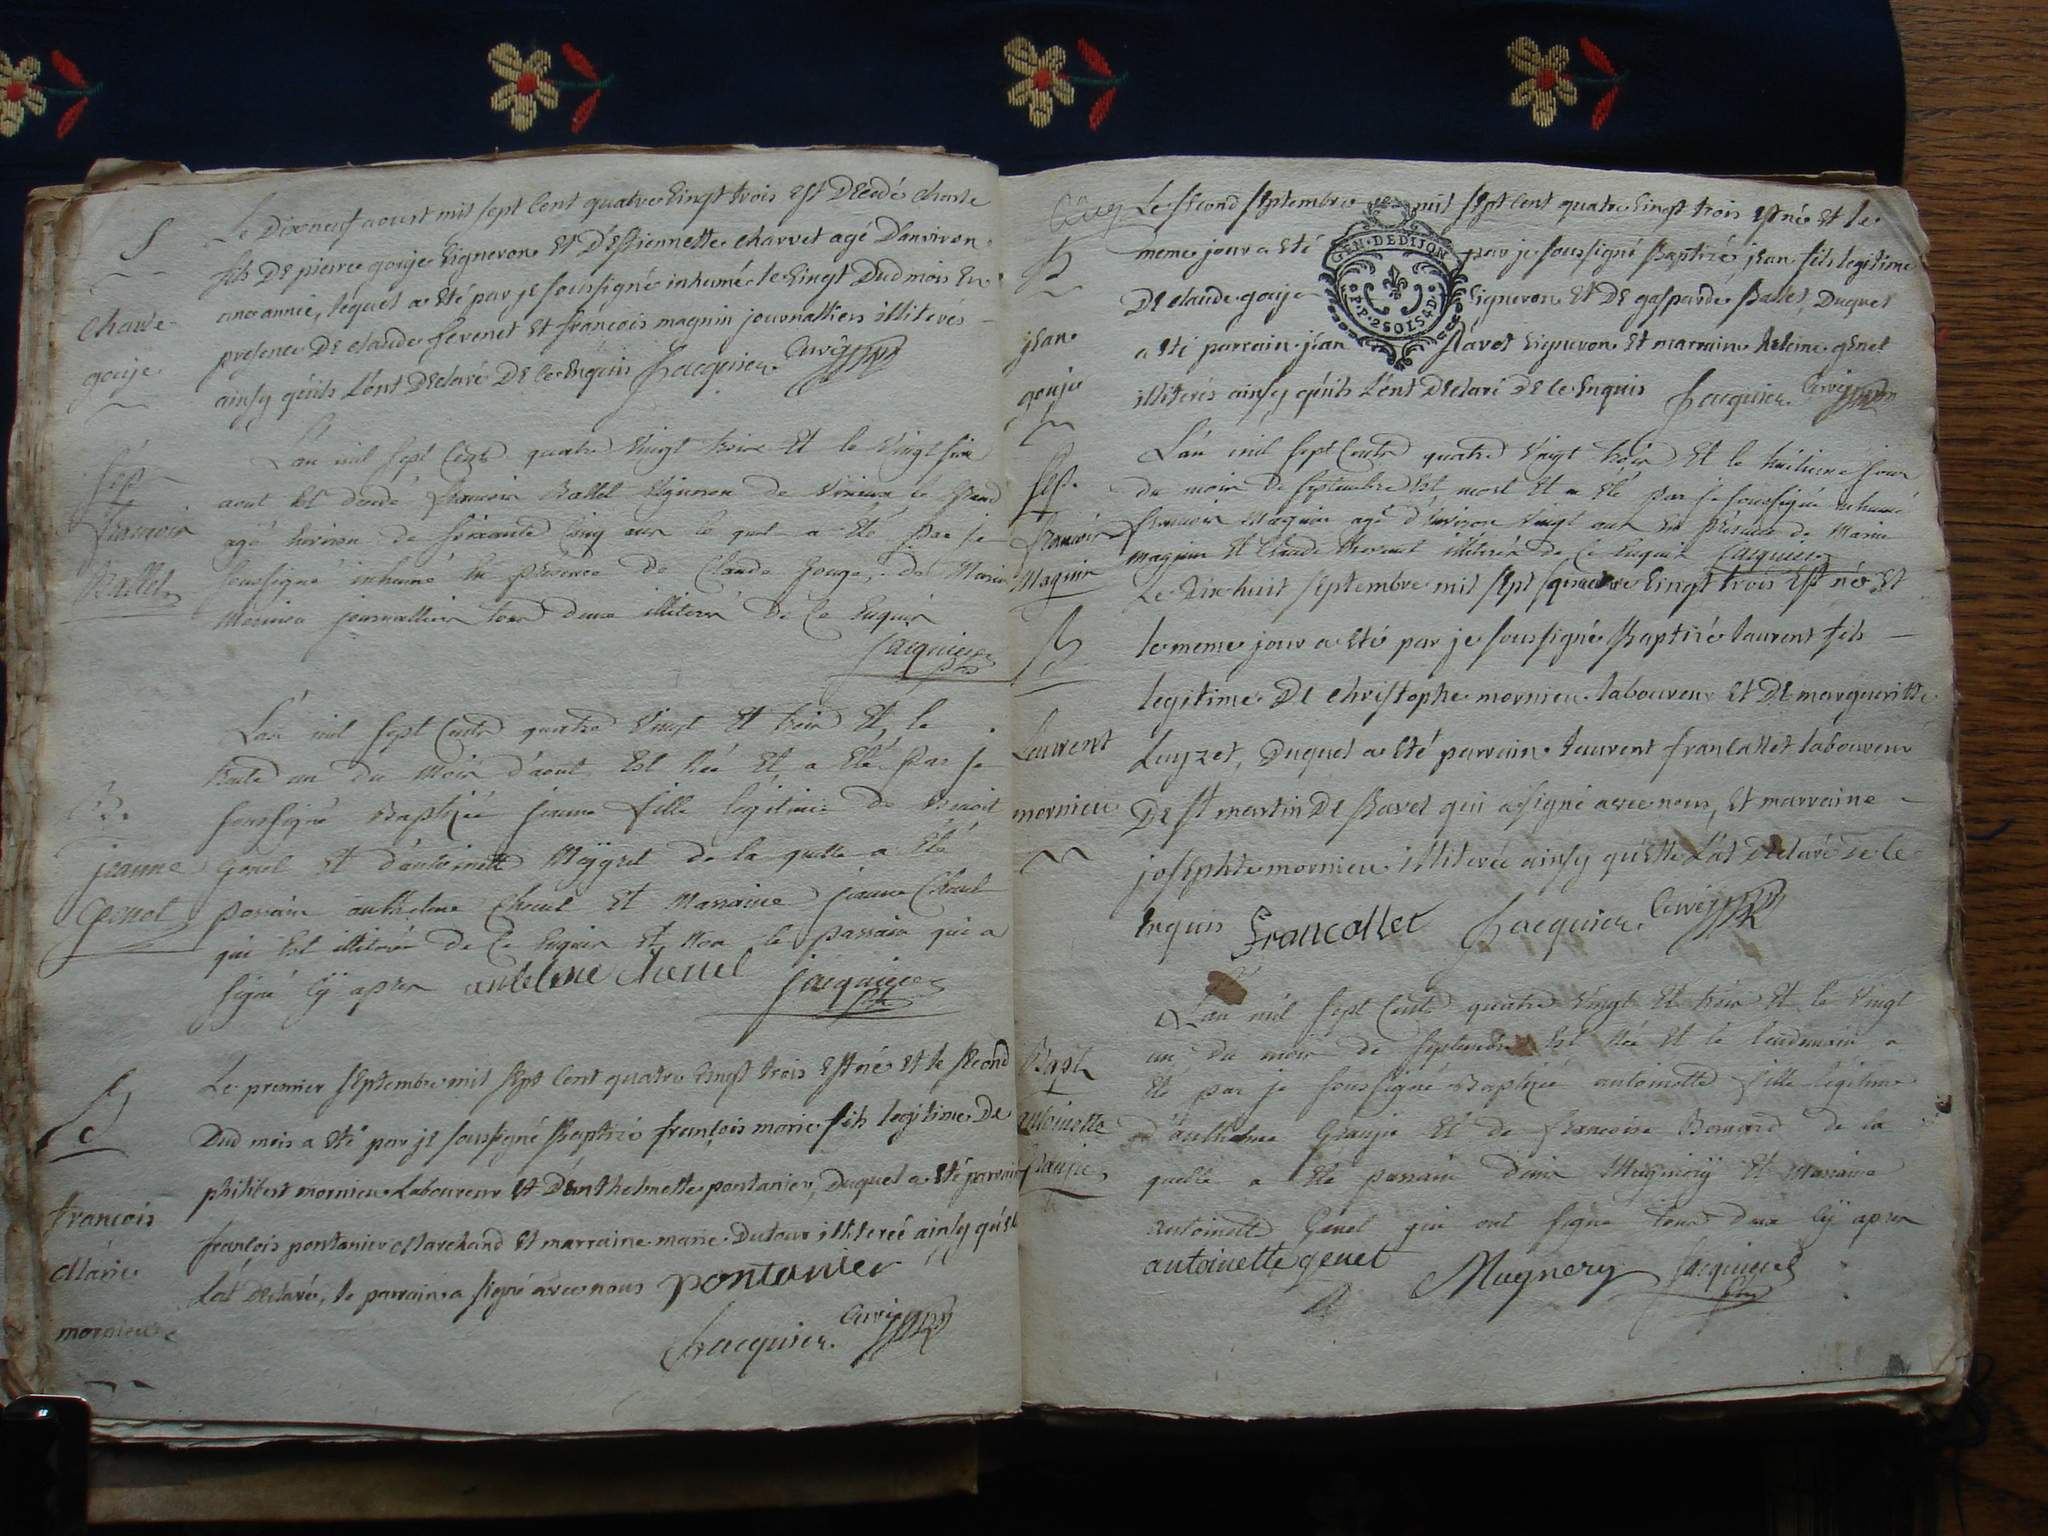 Le Dixneuf aoust mil sept Cent quatre Vingt trois est Decedé
S
fils De pierre gouje Vigneron Et D'Estiennette charvet agé D'anviron
une année, lequel a Eté par je soussigné inhumé le Vingt Dud mois En
gouje
presence De claude fevenet Et françois magnin journalliers illiterés
ainsy qu'ils L'ont Declaré De ce Enquis Jacquier Curé
L'an mil sept Cent quatre Vingt trois Et le Vingt six
Sep
aout Est decedé françois Ballet Vigneron de Virieux le grand
françois
agé heviron de soixante Cinq ans le quel a été par je
Ballet
soussigné inhumé En présence de Claude Gouge, de Marin
Mornieu journallier tous deux illiteré de Ce Enquis
Jacquier
L'an mil sept Cent quatre Vingt Et trois Et le
trente un du mois d'aout Est Née Et a Eté par je
B.
soussigné Baptizée jeanne fille légitime de Benoit
jeanne
Genet Et d'antoinette Meygret de la quelle a Eté
Genet
parrain anthelme Chenel Et Marraine jeanne Chenel
qui Est illitérée de Ce Enquis Et Non le parrain qui a
signé Cÿ apres antelme chenel Jacquier
Le premier septembre mil sept Cent quatre Vingt trois Est né Et le second
Dud mois a Eté par je soussigné Baptizé françois marie fils legitime De
philibert mornieu Laboureur Et D'anthelmette pontanier, Duquel a Eté parrain
françois
françois pontanier Marchand Et marraine marie Dutour illiterée ainsy qu'elle
Marie
L'at Declaré, le parrain a signé avec nous pontanier
mornieu
Jacquier Curé
Le second septembre mil sept Cent quatre Vingt trois Est né Et le
B
meme jour a Eté par je soussigné Baptizé jean fils legitime
GEN. DE DIJON
De claude gouje Vigneron Et De gasparde Ballet, Duquel
jean
a Eté parrain jean Vigneron Et marraine heleine genet
gouje
illiterés ainsy qu'ils L'ont Declaré De ce Enquis Jacquier Curé
L'an mil sept Cent quatre Vingt trois Et le huitieme jour
Sep.
du mois De septembre Est mort Et a Eté par je soussigné inhumé
françois
françois Magnin agé d'environ Vingt ans En présence de Marin
Magnin
magnin Et Claude thevenet illiterés de Ce Enquis Jacquier
Le Dix huit septembre mil sept quatre Vingt trois Est né Et
B
le meme jour a Eté par je soussigné Baptizé laurent fils
legitime De christophe mornieu laboureur Et De margueritte
Laurent
Luyzet, Duquel a Eté parrain laurent francallet laboureur
mornieu
De st martin De Bavel qui a signé avec nous, Et marraine
josephte mornieu illiterée ainsy qu'elle L'at Declaré De ce
Enquis francallet Jacquier Curé
L'an mil sept Cent quatre Vingt Et trois Et le Vingt
un Du mois de septembre Est Née Et le lendemain a
Bapt
Eté par je soussigné Baptizée antoinette fille légitime
antoinette
d'anthelme Graujie Et de francoise Bernard de la
quelle a Eté parrain denis Mugniery Et Marraine
antoinette Genet qui ont signé tous deux Cÿ apres
antoinette genet Mugnery Jacquier